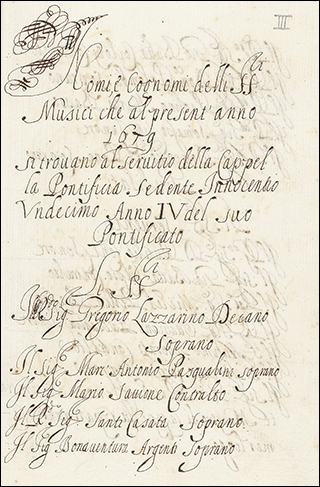 III
Nomi e Cognomi delli SS.ri
Musici che al present' anno
1679
si trovano al servitio della Cappel
la Pontificia Sedente Innocentio
Undecimo Anno IV del suo
Pontificato
SS.ri
Sig.r Gregorio Lazzarino Decano
Soprano
Il Sig.r Marc' Antonio Pasqualini Soprano
Il Sig.r Mario Savione Contralto
Il R. Sig.r Santi Casata Soprano
Il Sig.r Bonaventura Argenti Soprano